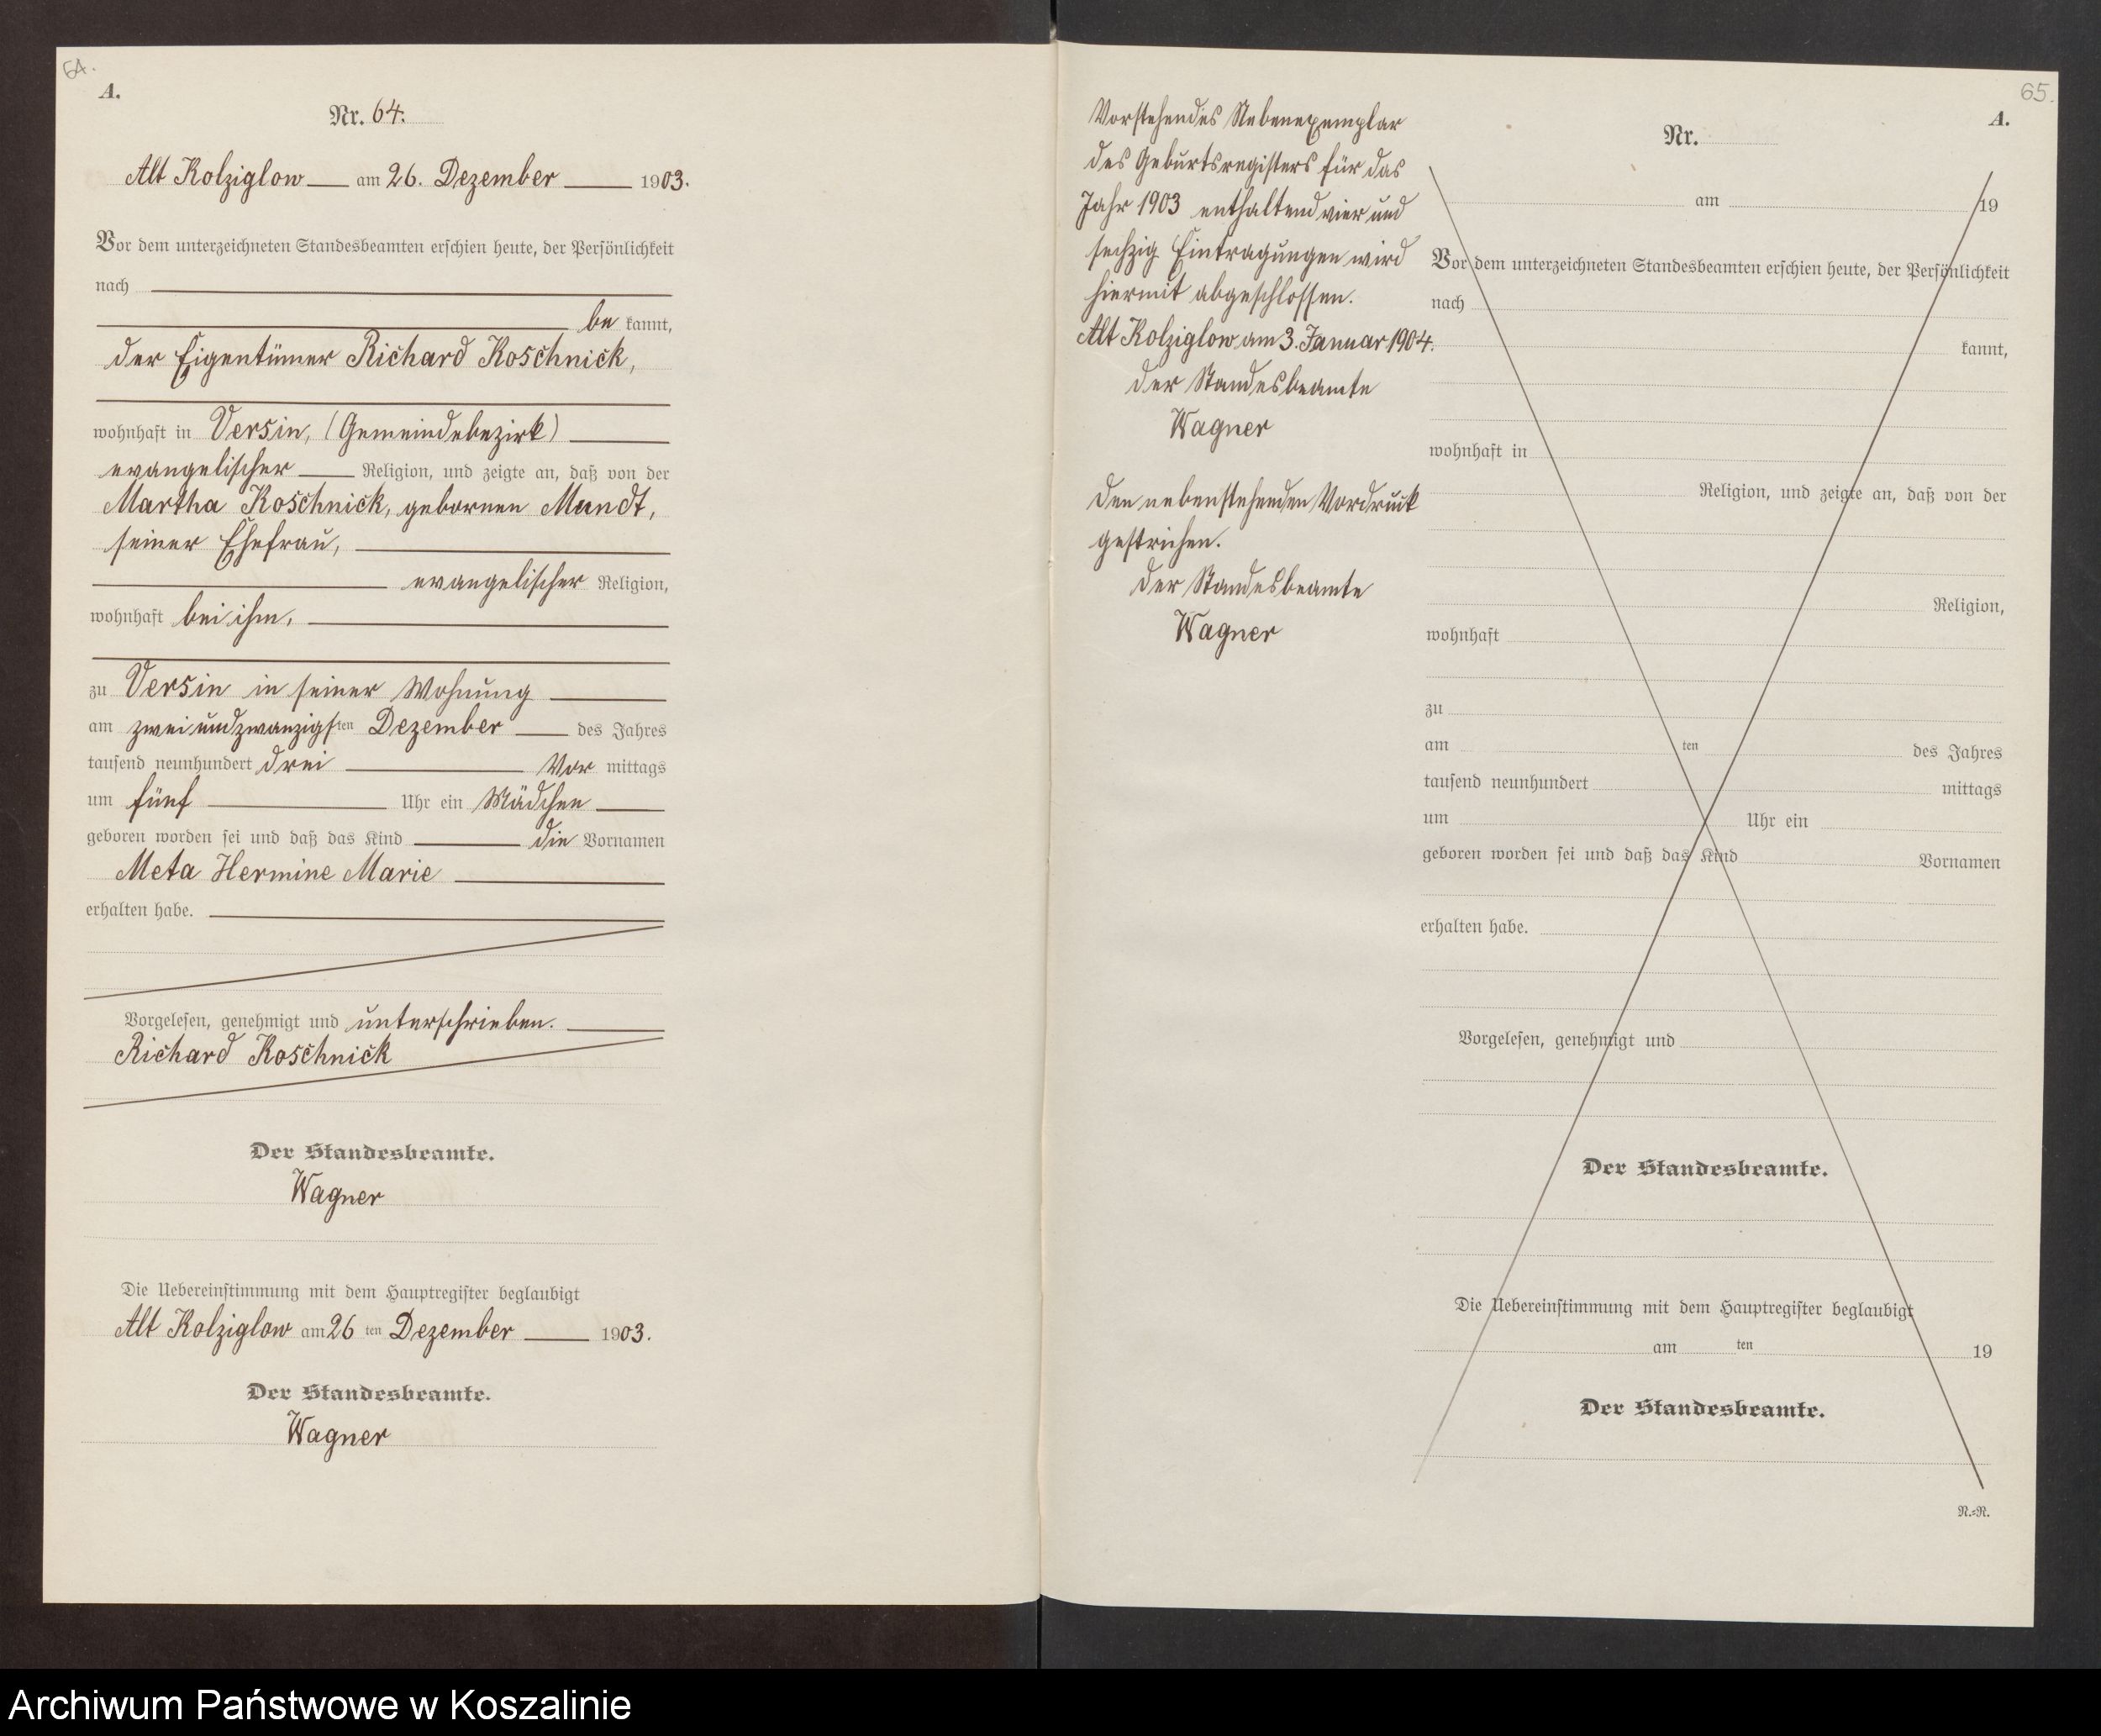 64.
A.
Nr. 64.
Alt Kolziglow am 26. Dezember 1903.
Vor dem unterzeichneten Standesbeamten erschien heute, der Persönlichkeit
nach
be kannt,
der Eigentümer Richard Koschnick,
wohnhaft in Versin, (Gemeindebezirk)
evangelischer Religion, und zeigte an, daß von der
Martha Koschnick, gebornen Mundt,
seiner Ehefrau,
evangelischer Religion,
wohnhaft bei ihm,
zu Versin in seiner Wohnung
am zwei und zwanzigsten Dezember des Jahres
tausend neunhundert drei Vor mittags
um fünf Uhr ein Mädchen
geboren worden sei und daß das Kind die Vornamen
Meta Hermine Marie
erhalten habe.
Vorgelesen, genehmigt und unterschrieben.
Richard Koschnick
Der Standesbeamte.
Wagner
Die Uebereinstimmung mit dem Hauptregister beglaubigt
Alt Kolziglow am 26 ten Dezember 1903.
Der Standesbeamte.
Wagner
Vorstehendes Nebenexemplar
des Geburtsregisters für das
Jahr 1903 enthaltend vier und
sechzig Eintragungen wird
hiermit abgeschlossen.
Alt Kolziglow am 3. Januar 1904.
der Standesbeamte
Wagner
Den nebenstehenden Vordruck
gestrichen.
Der Standesbeamte
Wagner
65.
A.
Nr.
am 19
Vor dem unterzeichneten Standesbeamten erschien heute, der Persönlichkeit
nach
kannt,
wohnhaft in
Religion, und zeigte an, daß von der
Religion,
wohnhaft
zu
am ten des Jahres
tausend neunhundert mittags
um Uhr ein
geboren worden sei und daß das Kind Vornamen
erhalten habe.
Vorgelesen, genehmigt und
Der Standesbeamte.
Die Uebereinstimmung mit dem Hauptregister beglaubigt
am ten 19
Der Standesbeamte.
N.=N.
Archiwum Państwowe w Koszalinie